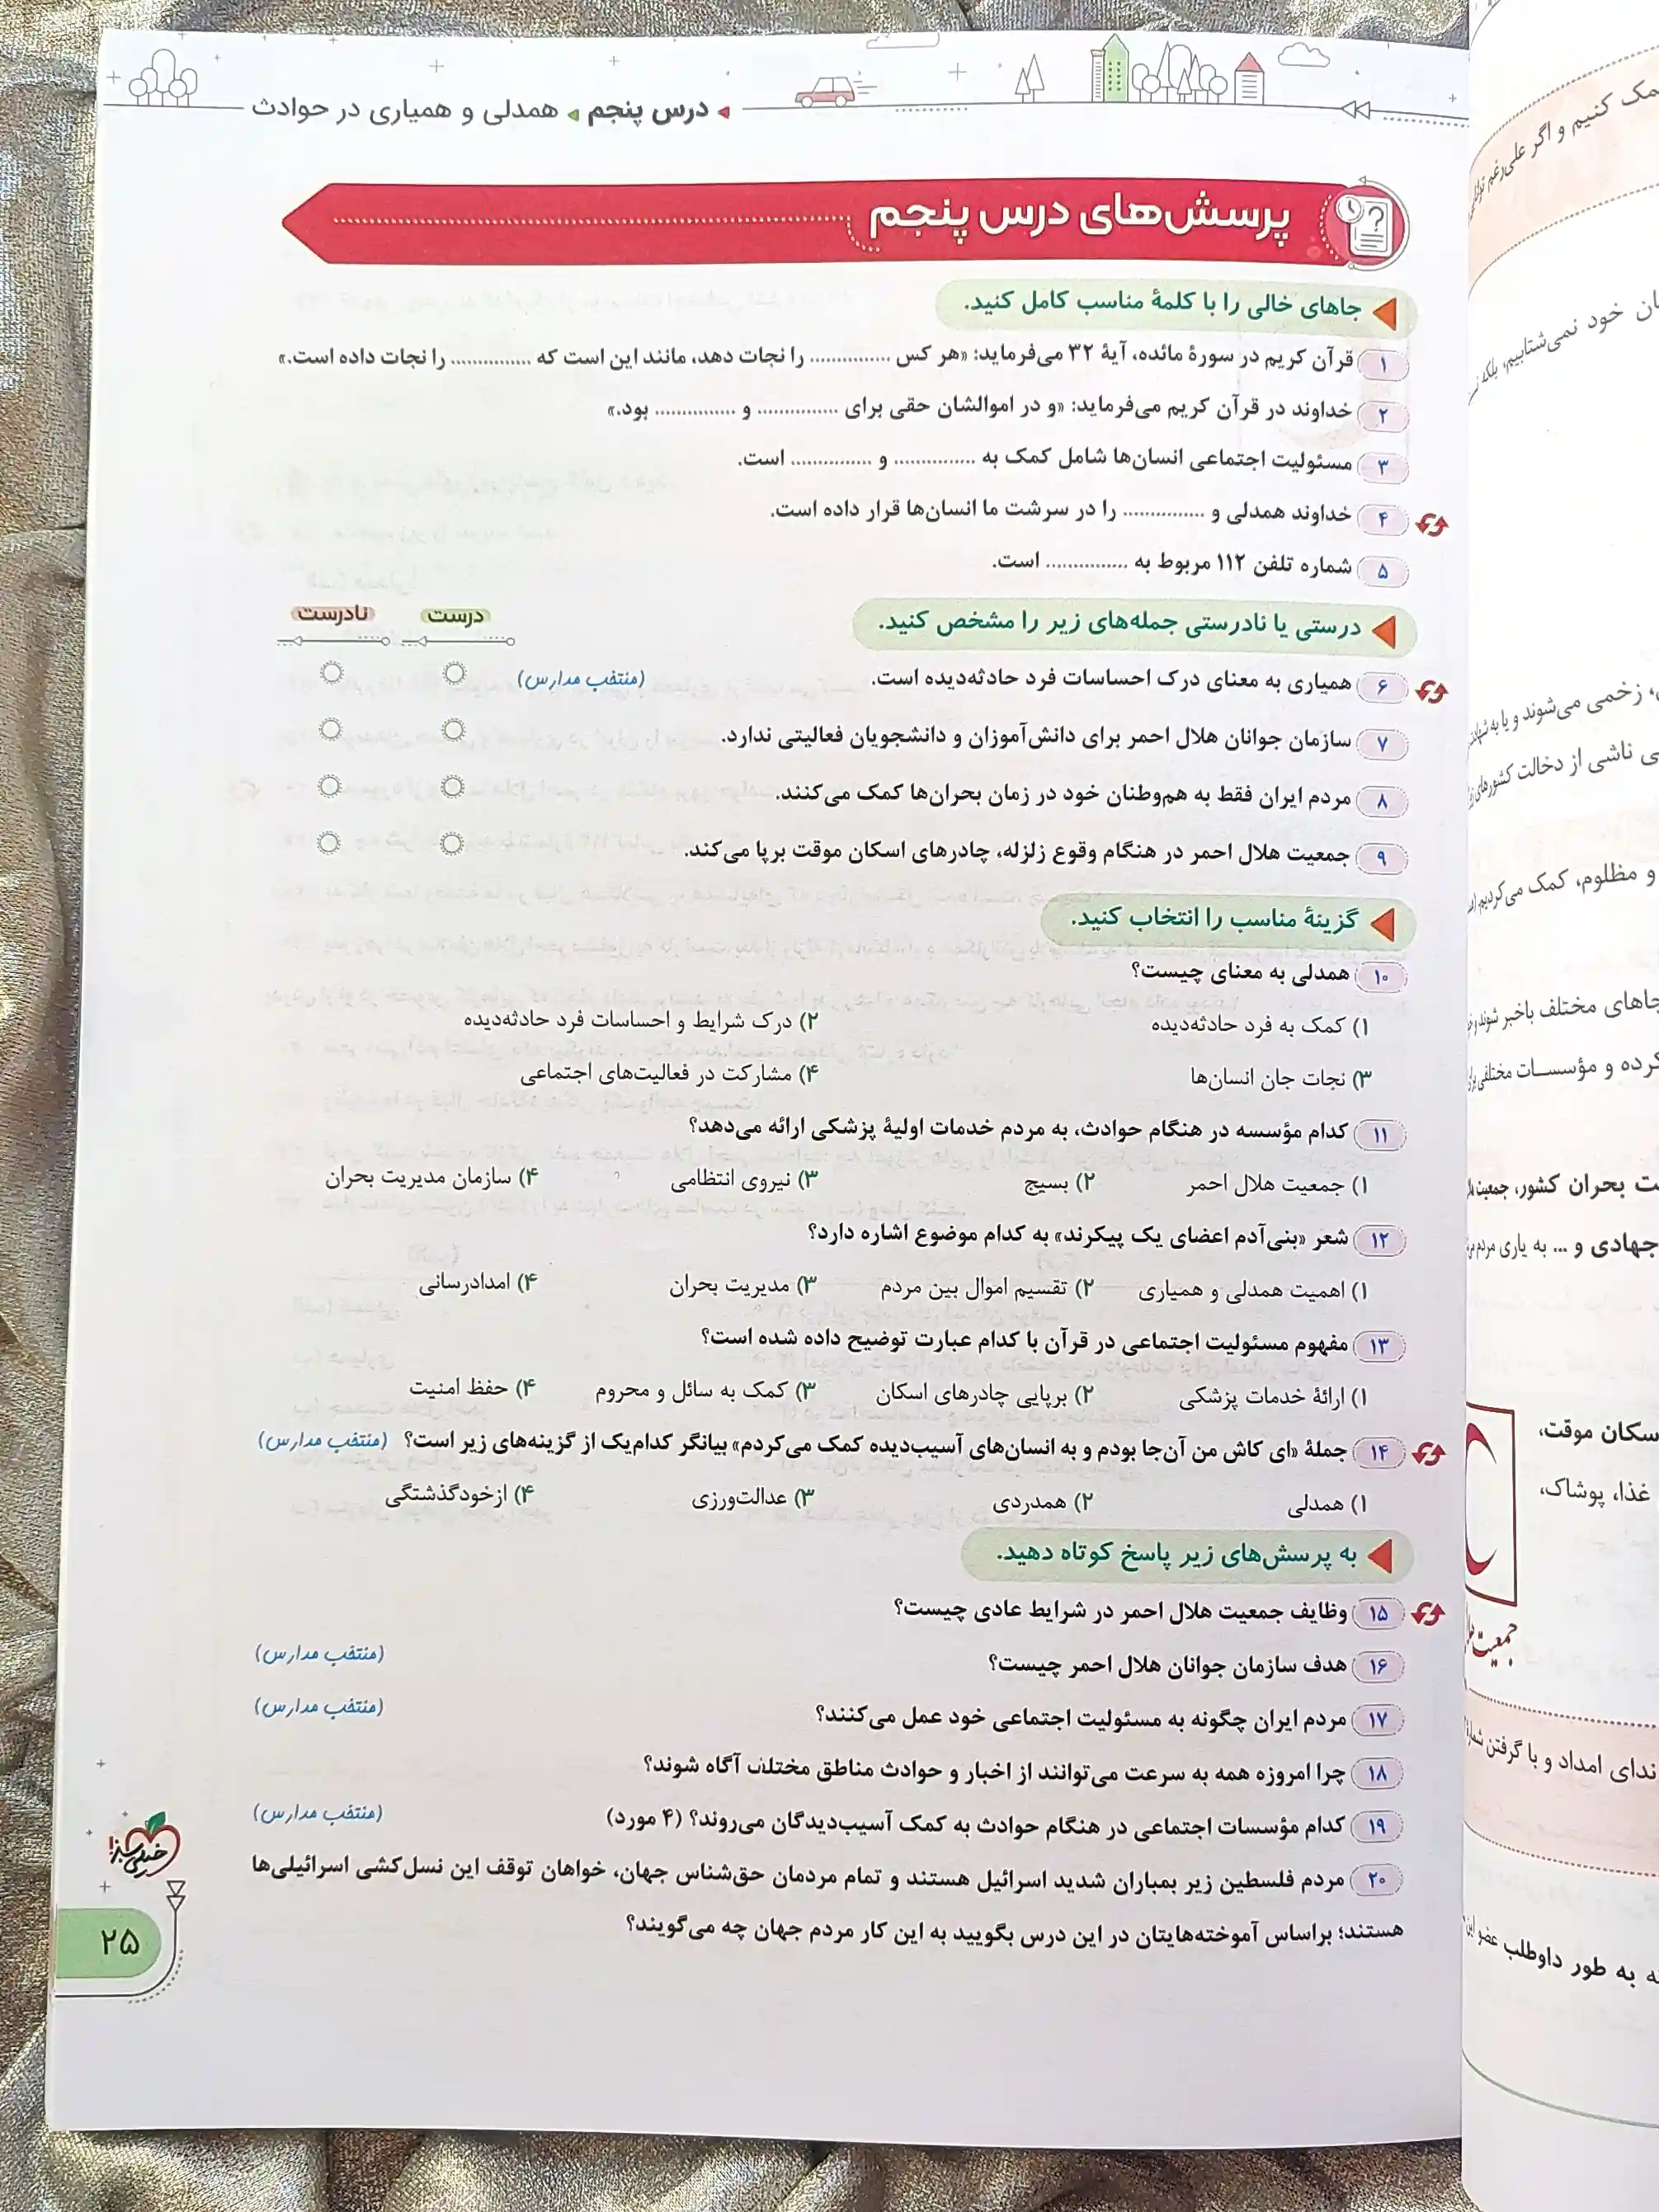 درس پنجم ◂ همدلی و همیاری در حوادث
پرسش‌های درس پنجم
جاهای خالی را با کلمهٔ مناسب کامل کنید.
۱ قرآن کریم در سورهٔ مائده، آیهٔ ۳۲ می‌فرماید: «هر کس ............... را نجات دهد، مانند این است که ............... را نجات داده است.»
۲ خداوند در قرآن کریم می‌فرماید: «و در اموالشان حقی برای ............... و ............... بود.»
۳ مسئولیت اجتماعی انسان‌ها شامل کمک به ............... و ............... است.
۴ خداوند همدلی و ............... را در سرشت ما انسان‌ها قرار داده است.
۵ شماره تلفن ۱۱۲ مربوط به ............... است.
درستی یا نادرستی جمله‌های زیر را مشخص کنید. درست نادرست
۶ همیاری به معنای درک احساسات فرد حادثه‌دیده است. (منتخب مدارس)
۷ سازمان جوانان هلال احمر برای دانش‌آموزان و دانشجویان فعالیتی ندارد.
۸ مردم ایران فقط به هم‌وطنان خود در زمان بحران‌ها کمک می‌کنند.
۹ جمعیت هلال احمر در هنگام وقوع زلزله، چادرهای اسکان موقت برپا می‌کند.
گزینهٔ مناسب را انتخاب کنید.
۱۰ همدلی به معنای چیست؟
۱) کمک به فرد حادثه‌دیده ۲) درک شرایط و احساسات فرد حادثه‌دیده
۳) نجات جان انسان‌ها ۴) مشارکت در فعالیت‌های اجتماعی
۱۱ کدام مؤسسه در هنگام حوادث، به مردم خدمات اولیهٔ پزشکی ارائه می‌دهد؟
۱) جمعیت هلال احمر ۲) بسیج ۳) نیروی انتظامی ۴) سازمان مدیریت بحران
۱۲ شعر «بنی‌آدم اعضای یک پیکرند» به کدام موضوع اشاره دارد؟
۱) اهمیت همدلی و همیاری ۲) تقسیم اموال بین مردم ۳) مدیریت بحران ۴) امدادرسانی
۱۳ مفهوم مسئولیت اجتماعی در قرآن با کدام عبارت توضیح داده شده است؟
۱) ارائهٔ خدمات پزشکی ۲) برپایی چادرهای اسکان ۳) کمک به سائل و محروم ۴) حفظ امنیت
۱۴ جملهٔ «ای کاش من آن‌جا بودم و به انسان‌های آسیب‌دیده کمک می‌کردم» بیانگر کدام‌یک از گزینه‌های زیر است؟ (منتخب مدارس)
۱) همدلی ۲) همدردی ۳) عدالت‌ورزی ۴) ازخودگذشتگی
به پرسش‌های زیر پاسخ کوتاه دهید.
۱۵ وظایف جمعیت هلال احمر در شرایط عادی چیست؟
۱۶ هدف سازمان جوانان هلال احمر چیست؟ (منتخب مدارس)
۱۷ مردم ایران چگونه به مسئولیت اجتماعی خود عمل می‌کنند؟ (منتخب مدارس)
۱۸ چرا امروزه همه به سرعت می‌توانند از اخبار و حوادث مناطق مختلف آگاه شوند؟
۱۹ کدام مؤسسات اجتماعی در هنگام حوادث به کمک آسیب‌دیدگان می‌روند؟ (۴ مورد) (منتخب مدارس)
۲۰ مردم فلسطین زیر بمباران شدید اسرائیل هستند و تمام مردمان حق‌شناس جهان، خواهان توقف این نسل‌کشی اسرائیلی‌ها
هستند؛ براساس آموخته‌هایتان در این درس بگویید به این کار مردم جهان چه می‌گویند؟
خیلی سبز
۲۵
کنیم و اگر علی‌رغم
خود نمی‌شتابیم، بلکه
زخمی می‌شوند و یا به
ناشی از دخالت کشورهای
و مظلوم، کمک می‌کردیم
جاهای مختلف باخبر شوند
کرده و مؤسسات مختلفی
بحران کشور، جمعیت
جهادی و ... به یاری مردم
اسکان موقت،
غذا، پوشاک،
جمعیت
ندای امداد و با گرفتن
به طور داوطلب عضو